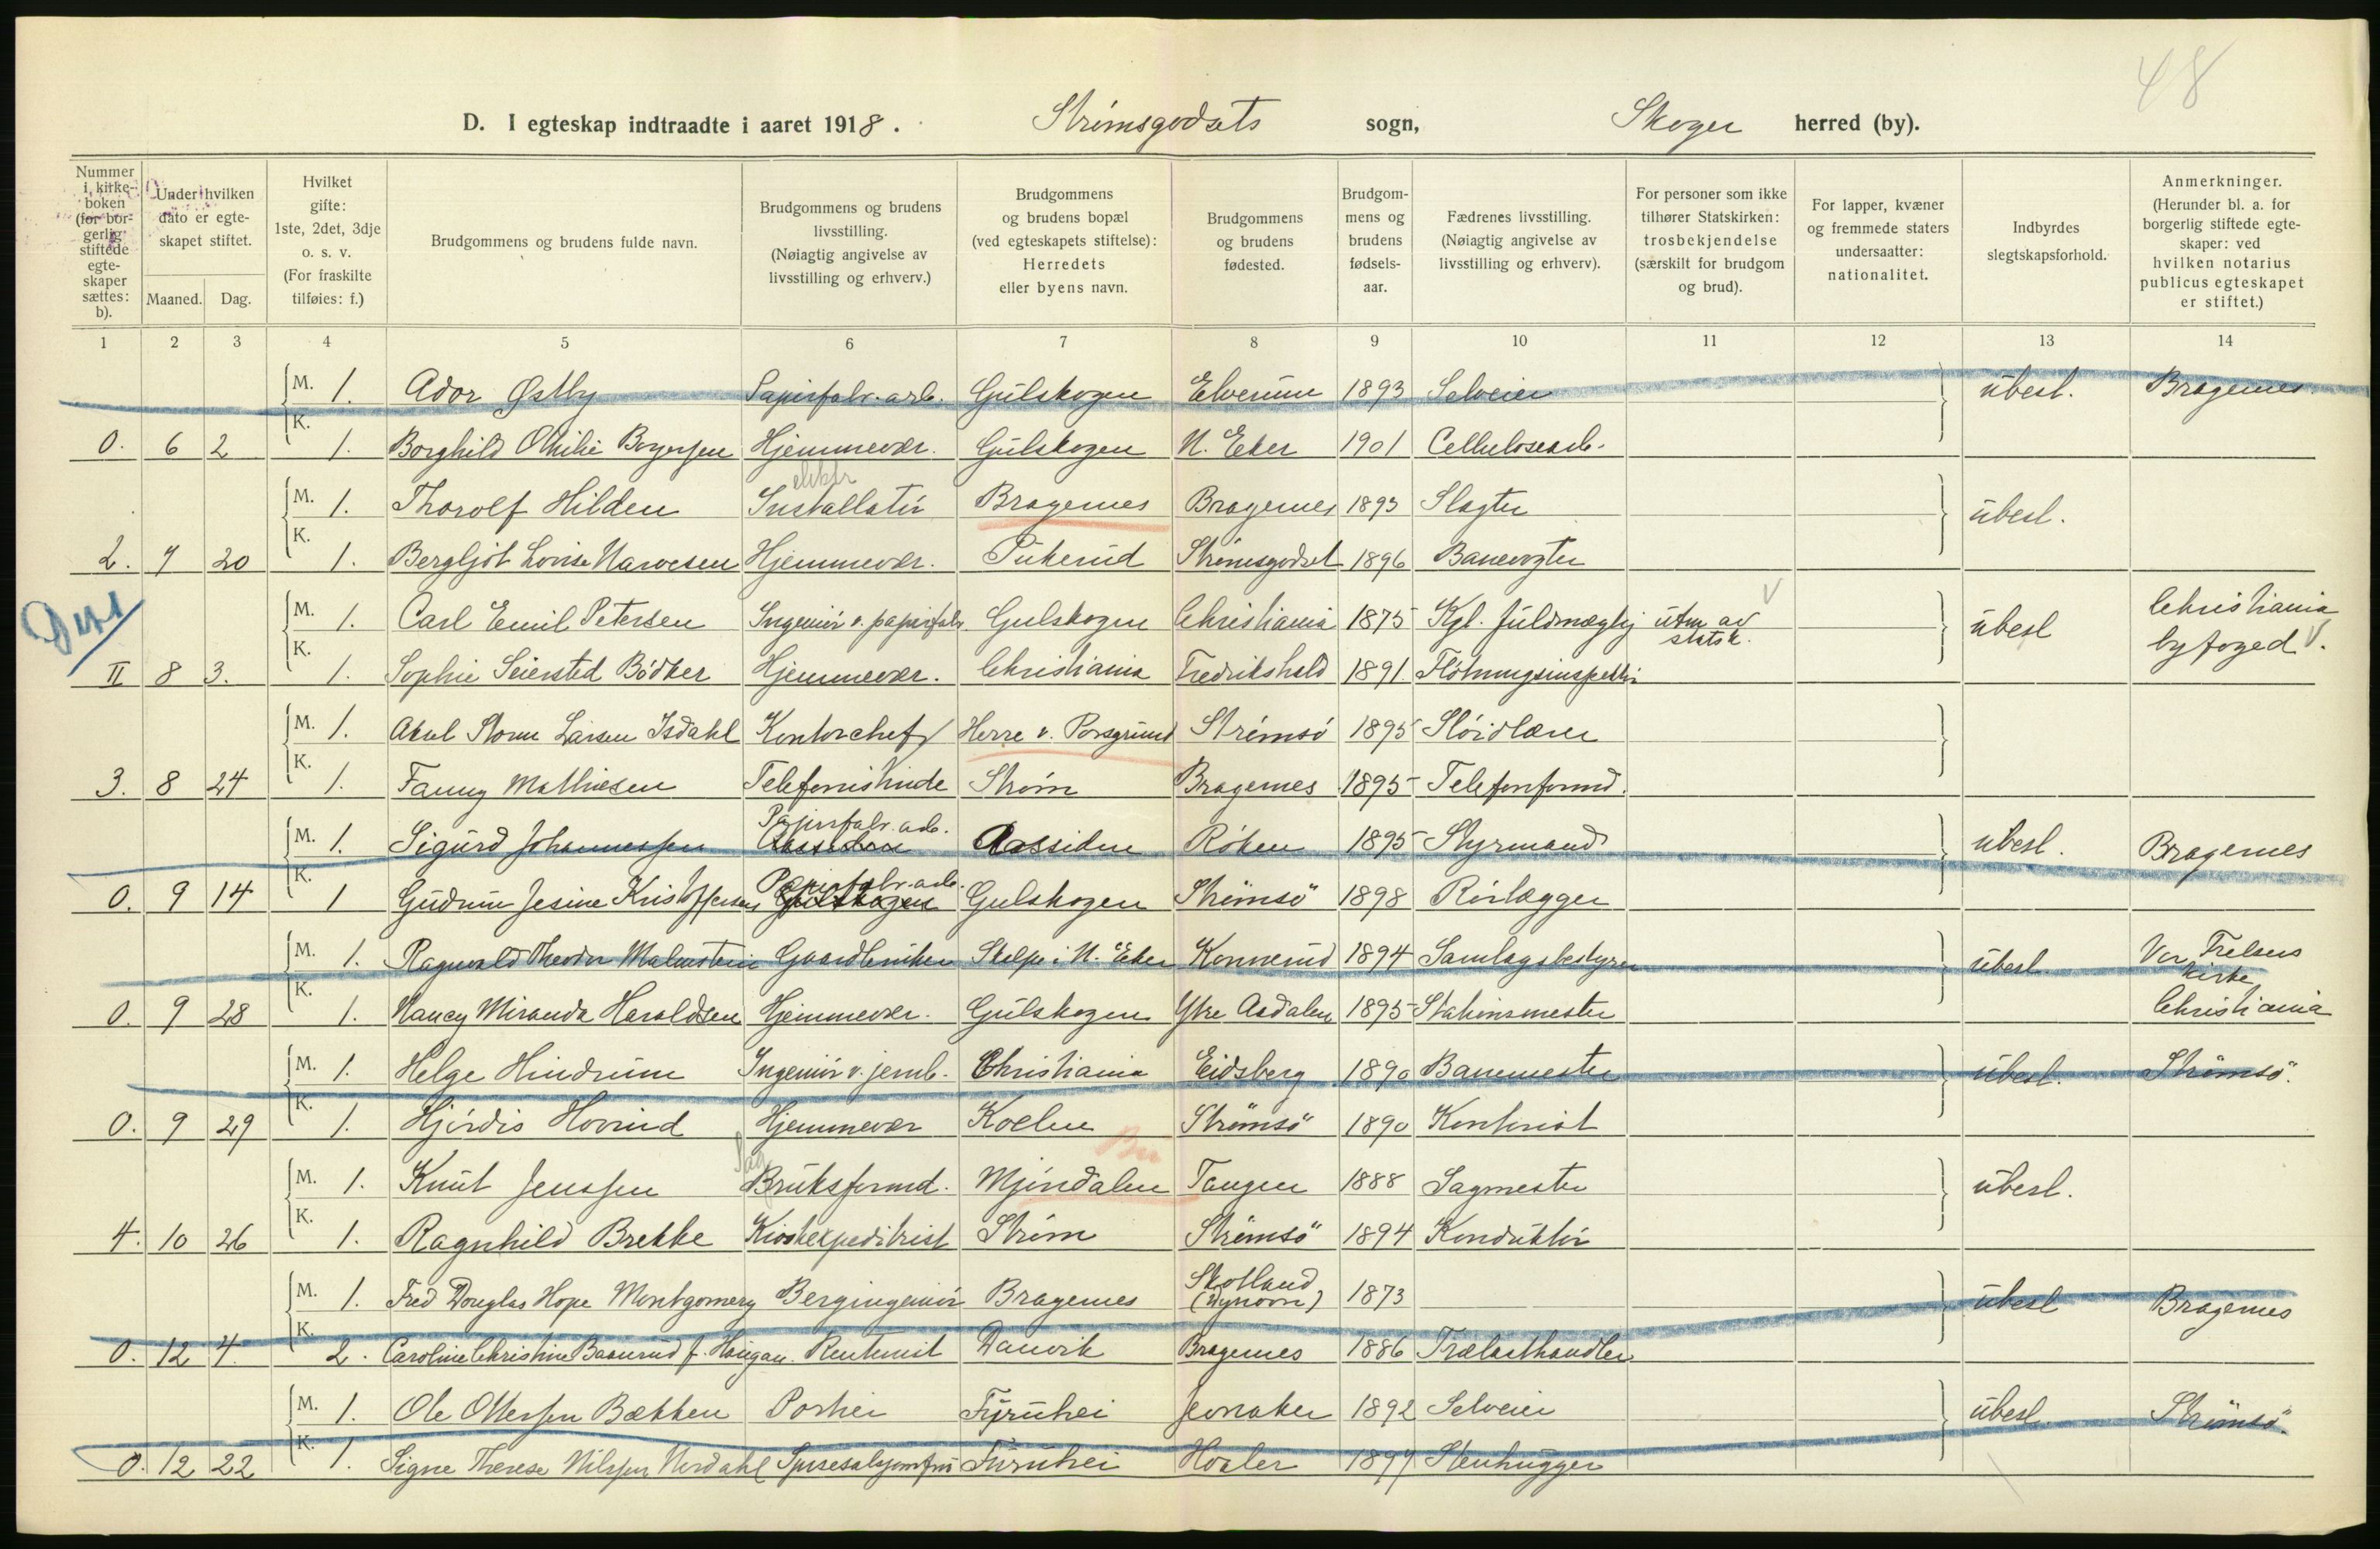 48
D. I egteskap indtraadte i aaret 1918. Strømsgodsets sogn, Skoger herred (by).
Nummer i kirkeboken (for borgerlig stiftede egteskaper sættes: b).
Under hvilken dato er egteskapet stiftet.
Maaned. Dag.
Hvilket gifte: 1ste, 2det, 3dje o. s. v. (For fraskilte tilføies: f.)
Brudgommens og brudens fulde navn.
Brudgommens og brudens livsstilling. (Nøiagtig angivelse av livsstilling og erhverv.)
Brudgommens og brudens bopæl (ved egteskapets stiftelse): Herredets eller byens navn.
Brudgommens og brudens fødested.
Brudgommens og brudens fødselsaar.
Fædrenes livsstilling. (Nøiagtig angivelse av livsstilling og erhverv).
For personer som ikke tilhører Statskirken: trosbekjendelse (særskilt for brudgom og brud).
For lapper, kvæner og fremmede staters undersaatter: nationalitet.
Indbyrdes slegtskapsforhold.
Anmerkninger. (Herunder bl. a. for borgerlig stiftede egteskaper: ved hvilken notarius publicus egteskapet er stiftet.)
1 2 3 4 5 6 7 8 9 10 11 12 13 14
M. 1. Ador Østby Papirfabr. arb. Gulskogen Elverum 1893 Selveier ubesl. Bragernes
0. 6 2 K. 1. Borghild Othilie Borgersen Hjemmevær. Gulskogen N. Eker 1901 Cellulosearb.
elektr
M. 1. Thorolf Hilden Installatør Bragernes Bragernes 1893 Slagter ubesl.
2. 7 20 K. 1. Bergljot Lovise Narvesen Hjemmevær. Pukerud Strømsgodset 1896 Banevogter
M. 1. Carl Emil Petersen Ingeniør v. papirfabr Gulskogen Christiania 1875 Kgl. fuldmægtig utm av statsk. ubesl Christiania byfoged V.
II 8 3. K. 1. Sophie Seiersted Bödker Hjemmevær. Christiania Fredrikshald 1891. Fløtningsinspektør
M. 1. Aksel Storm Larsen Isdahl Kontorchef Herre v. Porsgrund Strømsø 1895 Sløidlærer
3. 8 24 K. 1. Fanny Mathiesen Telefonistinde Strøm Bragernes 1895 Telefonformd.
M. 1. Sigurd Johannessen Papirfabr. arb. Aassiden Røken 1895 Styrmand ubesl. Bragernes
0. 9 14 K. 1 Gudrun Jesine Kristoffersen Papirfabr. arb. Gulskogen Strömsö 1898 Rørlægger
M. 1. Ragnvald Theodor Malmstein Gaardbruker Stelpe i N. Eker Konnerud 1894 Samlagsbestyrer ubesl. Vor Frelsers kirke
0. 9 28 K. 1. Nancy Miranda Haraldsen Hjemmevær. Gulskogen Ytre Aadalen 1895 Stationsmester Christiania
M. 1. Helge Hindrum Ingeniør v. jernb. Christiania Eidsberg 1890 Banemester ubesl. Strömsö.
0. 9 29 K. 1. Hjördis Hovrud Hjemmevær Strömsö 1890 Kontorist
Sag Bu
M. 1. Knut Jenssen Bruksformd. Mjøndalen Tangen 1888 Sagmester ubesl.
4. 10 26 K. 1. Ragnhild Brekke Kioskexpeditrise Strøm Strömsö 1894 Konduktør
M. 1. Fred Douglas Hope Montgomery Bergingeniør Bragernes Skotland 1873 ubesl Bragernes
0. 12 4. K. 2. Caroline Christine Baanrud f. Haugan. Danvik Bragernes 1886 Trælasthandler
M. 1. Ole Ottersen Bækken Portier Furuhei Jevnaker 1892 Selveier ubesl. Strömsö.
0. 12 22 K. 1. Signe Therese Nilssen Nordahl Furuhei Hvaler 1897 Stenhugger